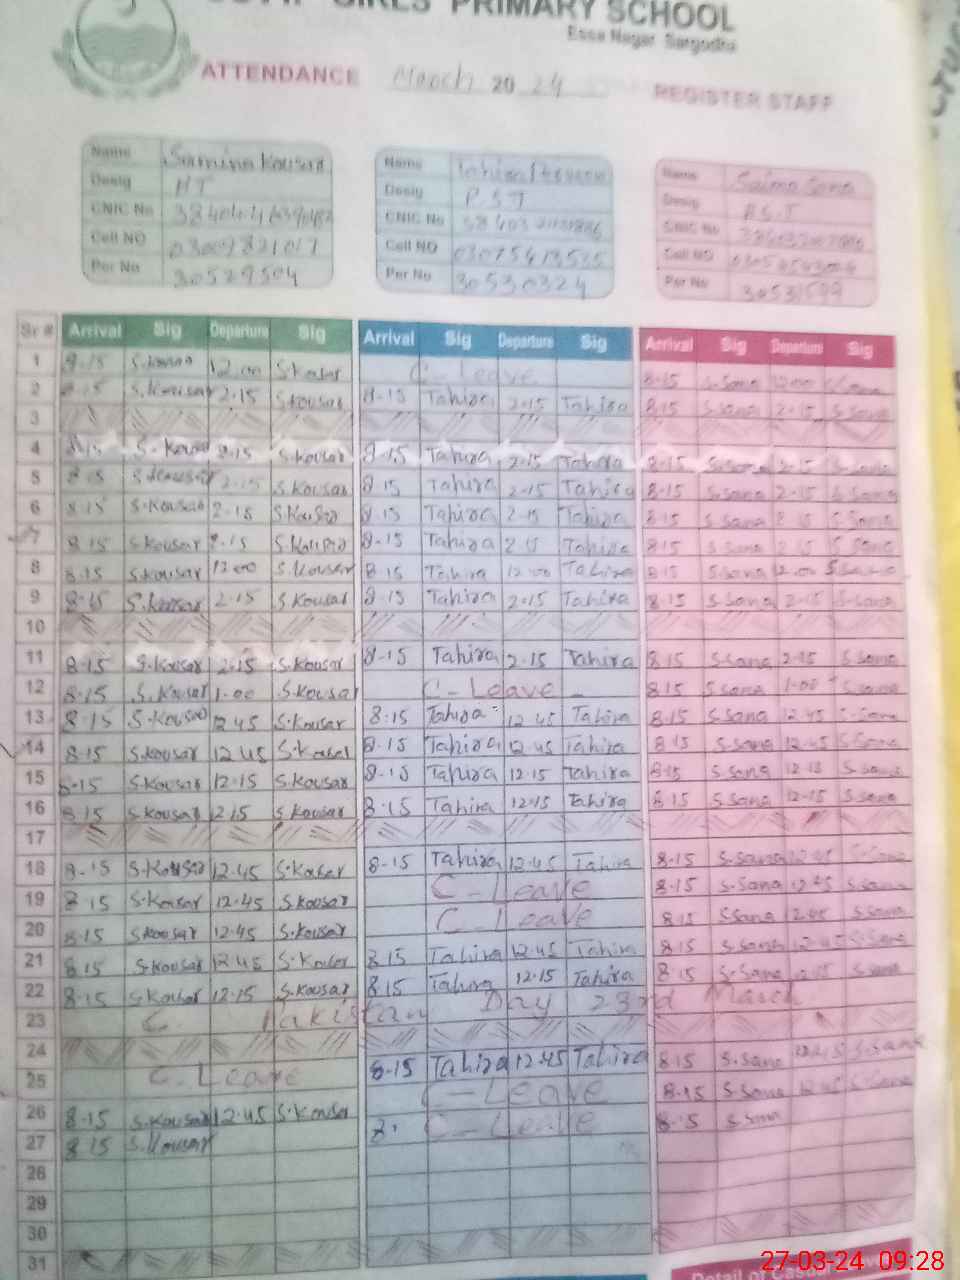 GIRLS PRIMARY SCHOOL
Essa Nagar Sargodha
ATTENDANCE March 2024 REGISTER STAFF
Name Samina Kousar
Desig HT
CNIC No
Cell NO 03009821017
Per No 30529504
Name Tahira
Desig P.S.T
CNIC No
Cell NO
Per No 30530324
Name Saima Sana
Desig P.S.T
CNIC No
Cell NO
Per No
Sr # Arrival Sig Departure Sig Arrival Sig Departure Sig Arrival Sig Departure Sig
1 8-15 S.Kousar 12.00 S.Kousar C-Leave 8-15 S.Sana 12-00 S.Sana
2 8-15 S.Kousar 2-15 S.Kousar 8-15 Tahira 2-15 Tahira 8-15 S.Sana 2-15 S.Sana
3
4 8-15 S.Kousar 2-15 S.Kousar 8-15 Tahira 2-15 Tahira 8-15 S.Sana 2-15 S.Sana
5 8-15 S.Kousar 2-15 S.Kousar 8-15 Tahira 2-15 Tahira 8-15 S.Sana 2-15 S.Sana
6 8-15 S.Kousar 2-15 S.Kousar 8-15 Tahira 2-15 Tahira 8-15 S.Sana 2-15 S.Sana
7 8-15 S.Kousar 2-15 S.Kousar 8-15 Tahira 2-15 Tahira 8-15 S.Sana 2-15 S.Sana
8 8-15 S.Kousar 12-00 S.Kousar 8-15 Tahira 12-00 Tahira 8-15 S.Sana 12-00 S.Sana
9 8-15 S.Kousar 2-15 S.Kousar 8-15 Tahira 2-15 Tahira 8-15 S.Sana 2-15 S.Sana
10
11 8-15 S.Kousar 2-15 S.Kousar 8-15 Tahira 2-15 Tahira 8-15 S.Sana 2-15 S.Sana
12 8-15 S.Kousar 1-00 S.Kousar C-Leave 8-15 S.Sana 1-00 S.Sana
13 8-15 S.Kousar 12-45 S.Kousar 8-15 Tahira 12-45 Tahira 8-15 S.Sana 12-45 S.Sana
14 8-15 S.Kousar 12-45 S.Kousar 8-15 Tahira 12-45 Tahira 8-15 S.Sana 12-45 S.Sana
15 8-15 S.Kousar 12-15 S.Kousar 8-15 Tahira 12-15 Tahira 8-15 S.Sana 12-15 S.Sana
16 8-15 S.Kousar 2-15 S.Kousar 8-15 Tahira 12-15 Tahira 8-15 S.Sana 12-15 S.Sana
17
18 8-15 S.Kousar 12-45 S.Kousar 8-15 Tahira 12-45 Tahira 8-15 S.Sana 12-45 S.Sana
19 8-15 S.Kousar 12-45 S.Kousar C-Leave 8-15 S.Sana 12-45 S.Sana
20 8-15 S.Kousar 12-45 S.Kousar C-Leave 8-15 S.Sana 12-45 S.Sana
21 8-15 S.Kousar 12-45 S.Kousar 8-15 Tahira 12-45 Tahira 8-15 S.Sana 12-45 S.Sana
22 8-15 S.Kousar 12-15 S.Kousar 8-15 Tahira 12-15 Tahira 8-15 S.Sana 12-15 S.Sana
23 Pakistan Day 23rd March
24
25 C-Leave 8-15 Tahira 12-45 Tahira 8-15 S.Sana 12-45 S.Sana
26 8-15 S.Kousar 12-45 S.Kousar C-Leave 8-15 S.Sana 12-45 S.Sana
27 8-15 S.Kousar 8- C-Leave 8-15 S.Sana
28
29
30
31
27-03-24 09:28